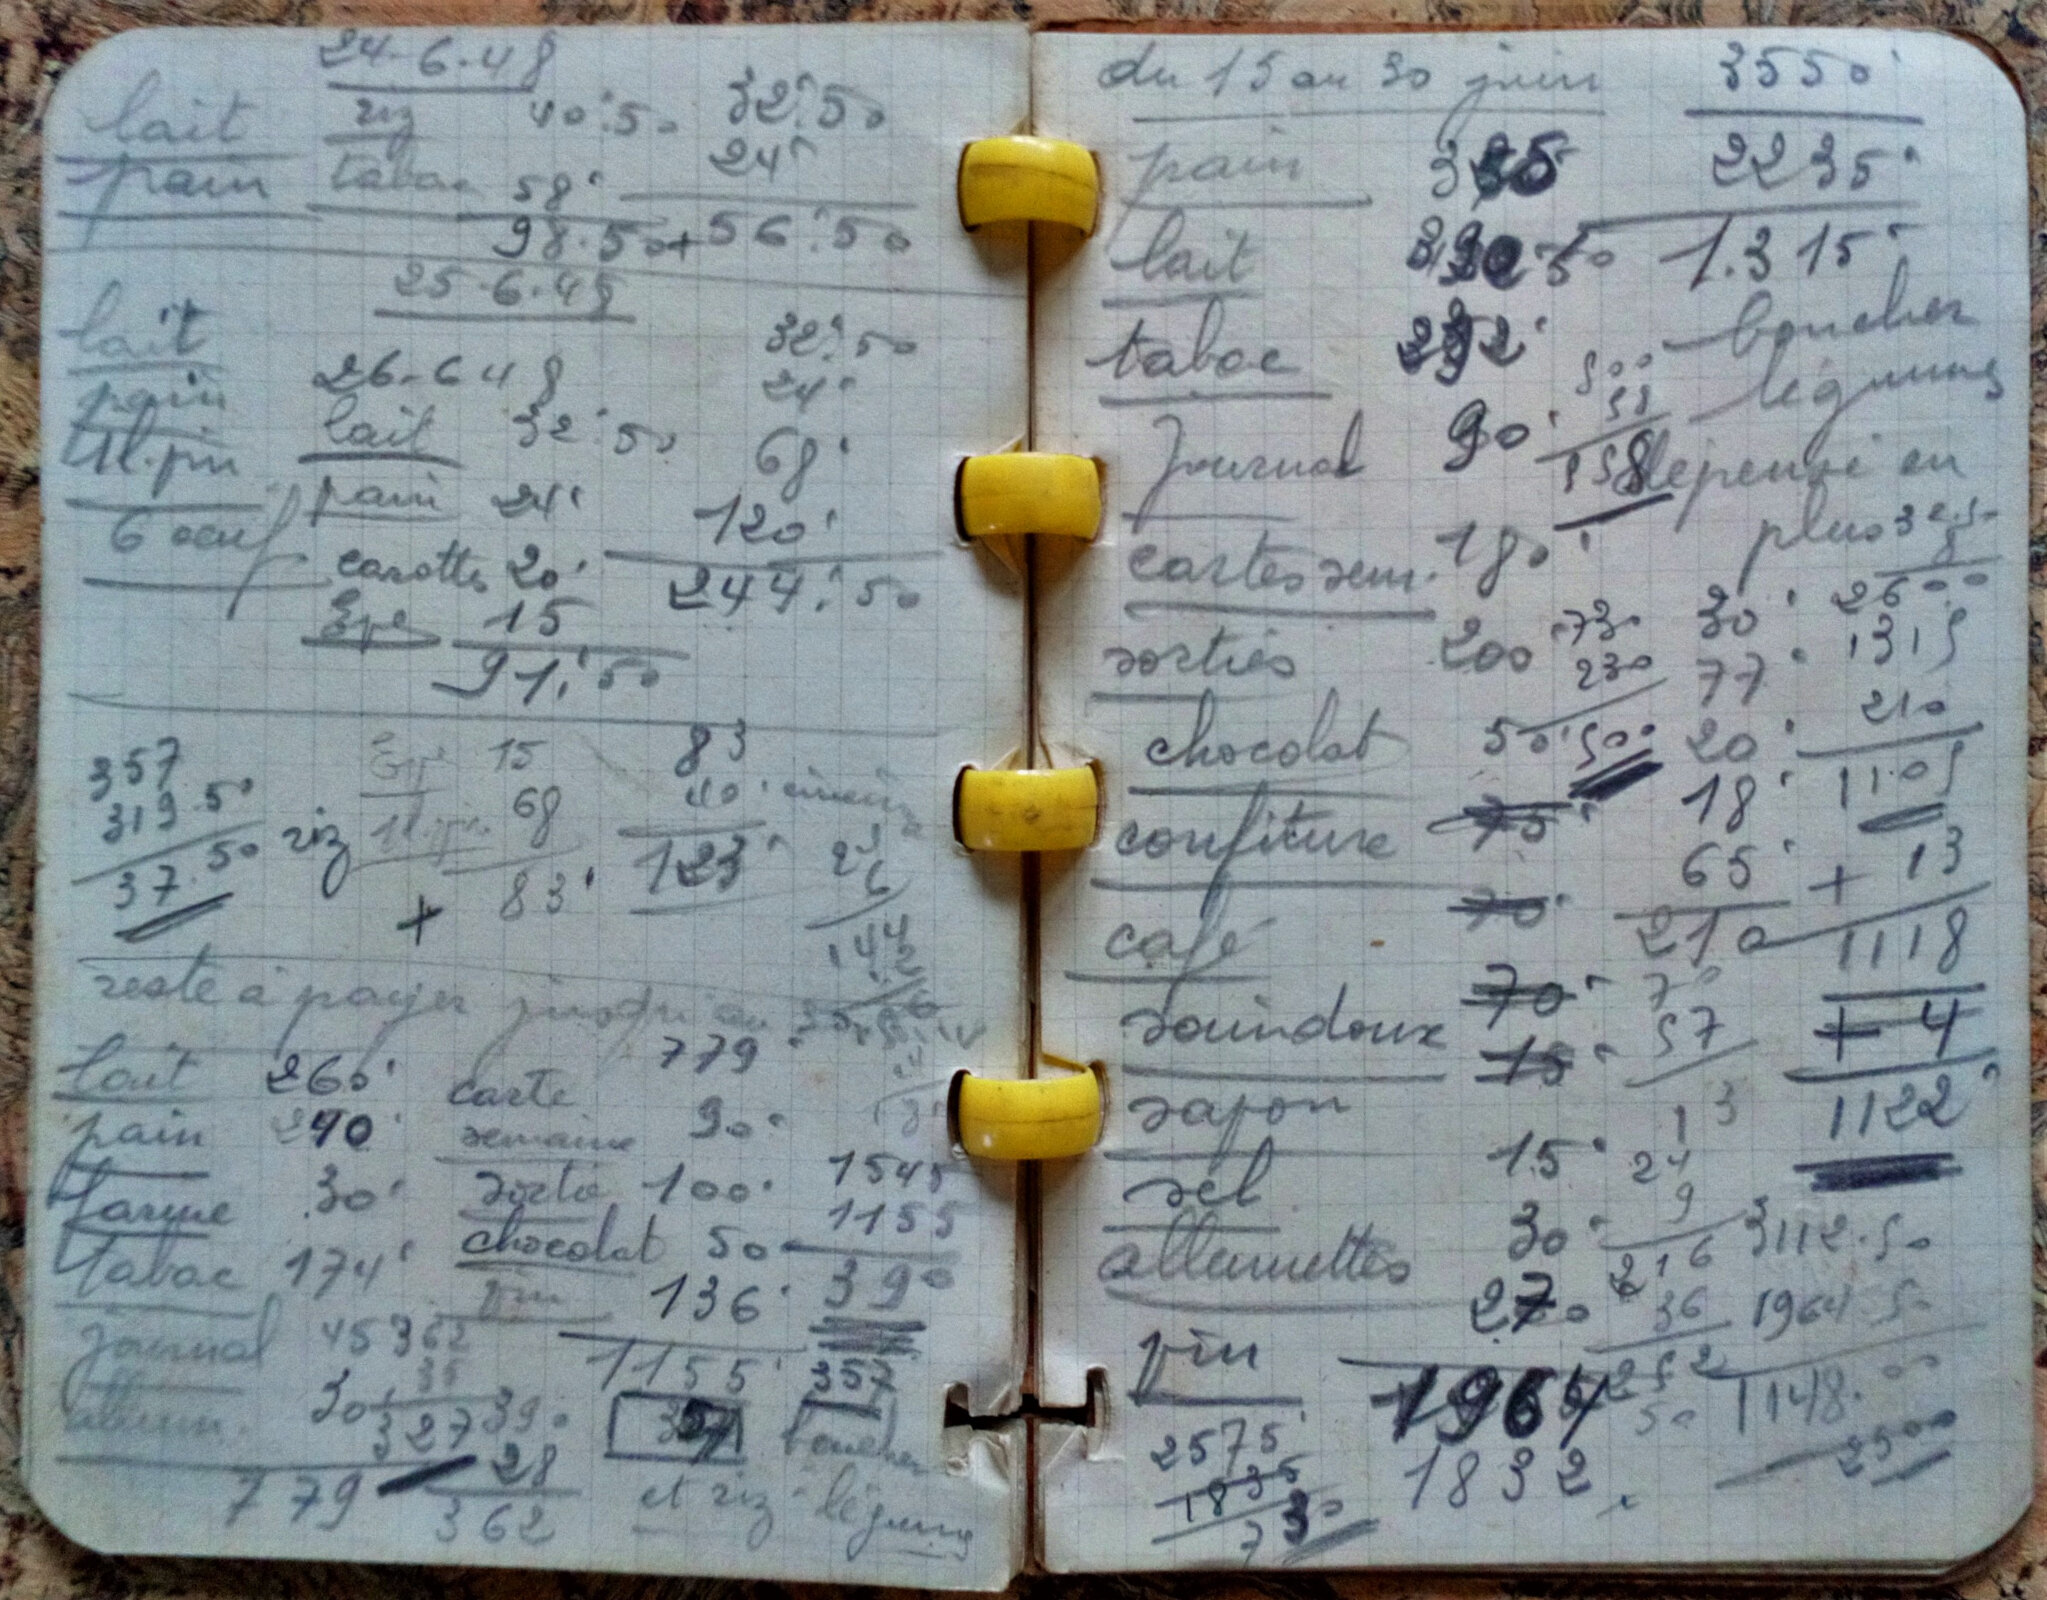 24-6-48
lait riz 40.50 32.50
pain tabac 58 24
98.50 + 56.50
25-6-48
lait 32.50
pain 26-6 48 24
1l. vin lait 32.50 68
6 oeuf pain 24 120
carottes 20 244.50
15
91.50
357 15 83
319.50 68 40
37.50 riz 83 123
+
reste à payer jusqu'au
lait 260 779
pain 240 carte semaine 90
30 sortie 100 1545
tabac 174 chocolat 50 1155
journal 45 362 vin 136 390
allum. 30 35 1155 357
327 390 boucher
779 28 et riz - légumes
362
du 15 au 30 juin 3550
pain 2235
lait 50 1.315
tabac 292 boucher
500 légumes
58
journal 90 558 dépensé en
plus 32.50
cartes sem. 180
sorties 200 730 30 2600
230 77 1315
chocolat 50 500 20 210
confiture 75 18 1105
65 + 13
café 70 210 1118
saindoux 70 70 + 4
savon 15 57 1122
13
sel 15 24
allumettes 30 9 3112.50
216
vin 270 36 1964.50
1964 252 1148.00
2575 1832 50 2500
1835
730